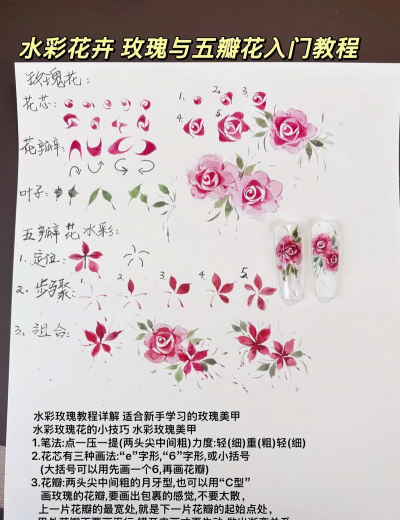 水彩花卉 玫瑰与五瓣花入门教程
玫瑰花:
花芯:
1. 2. 3.
4. 5.
花瓣:
叶子:
五瓣花水彩:
1、定位:
2、步骤:
1. 2. 3. 4. 5.
3、组合:
水彩玫瑰教程详解 适合新手学习的玫瑰美甲
水彩玫瑰花的小技巧 水彩玫瑰美甲
1.笔法:点一压一提(两头尖中间粗)力度:轻(细)重(粗)轻(细)
2.花芯有三种画法:“e”字形,“6”字形,或小括号
(大括号可以用先画一个6,再画花瓣)
3.花瓣:两头尖中间粗的月牙型,也可以用“C型”
画玫瑰的花瓣,要画出包裹的感觉,不要太散,
上一片花瓣的最宽处,就是下一片花瓣的起始点处,